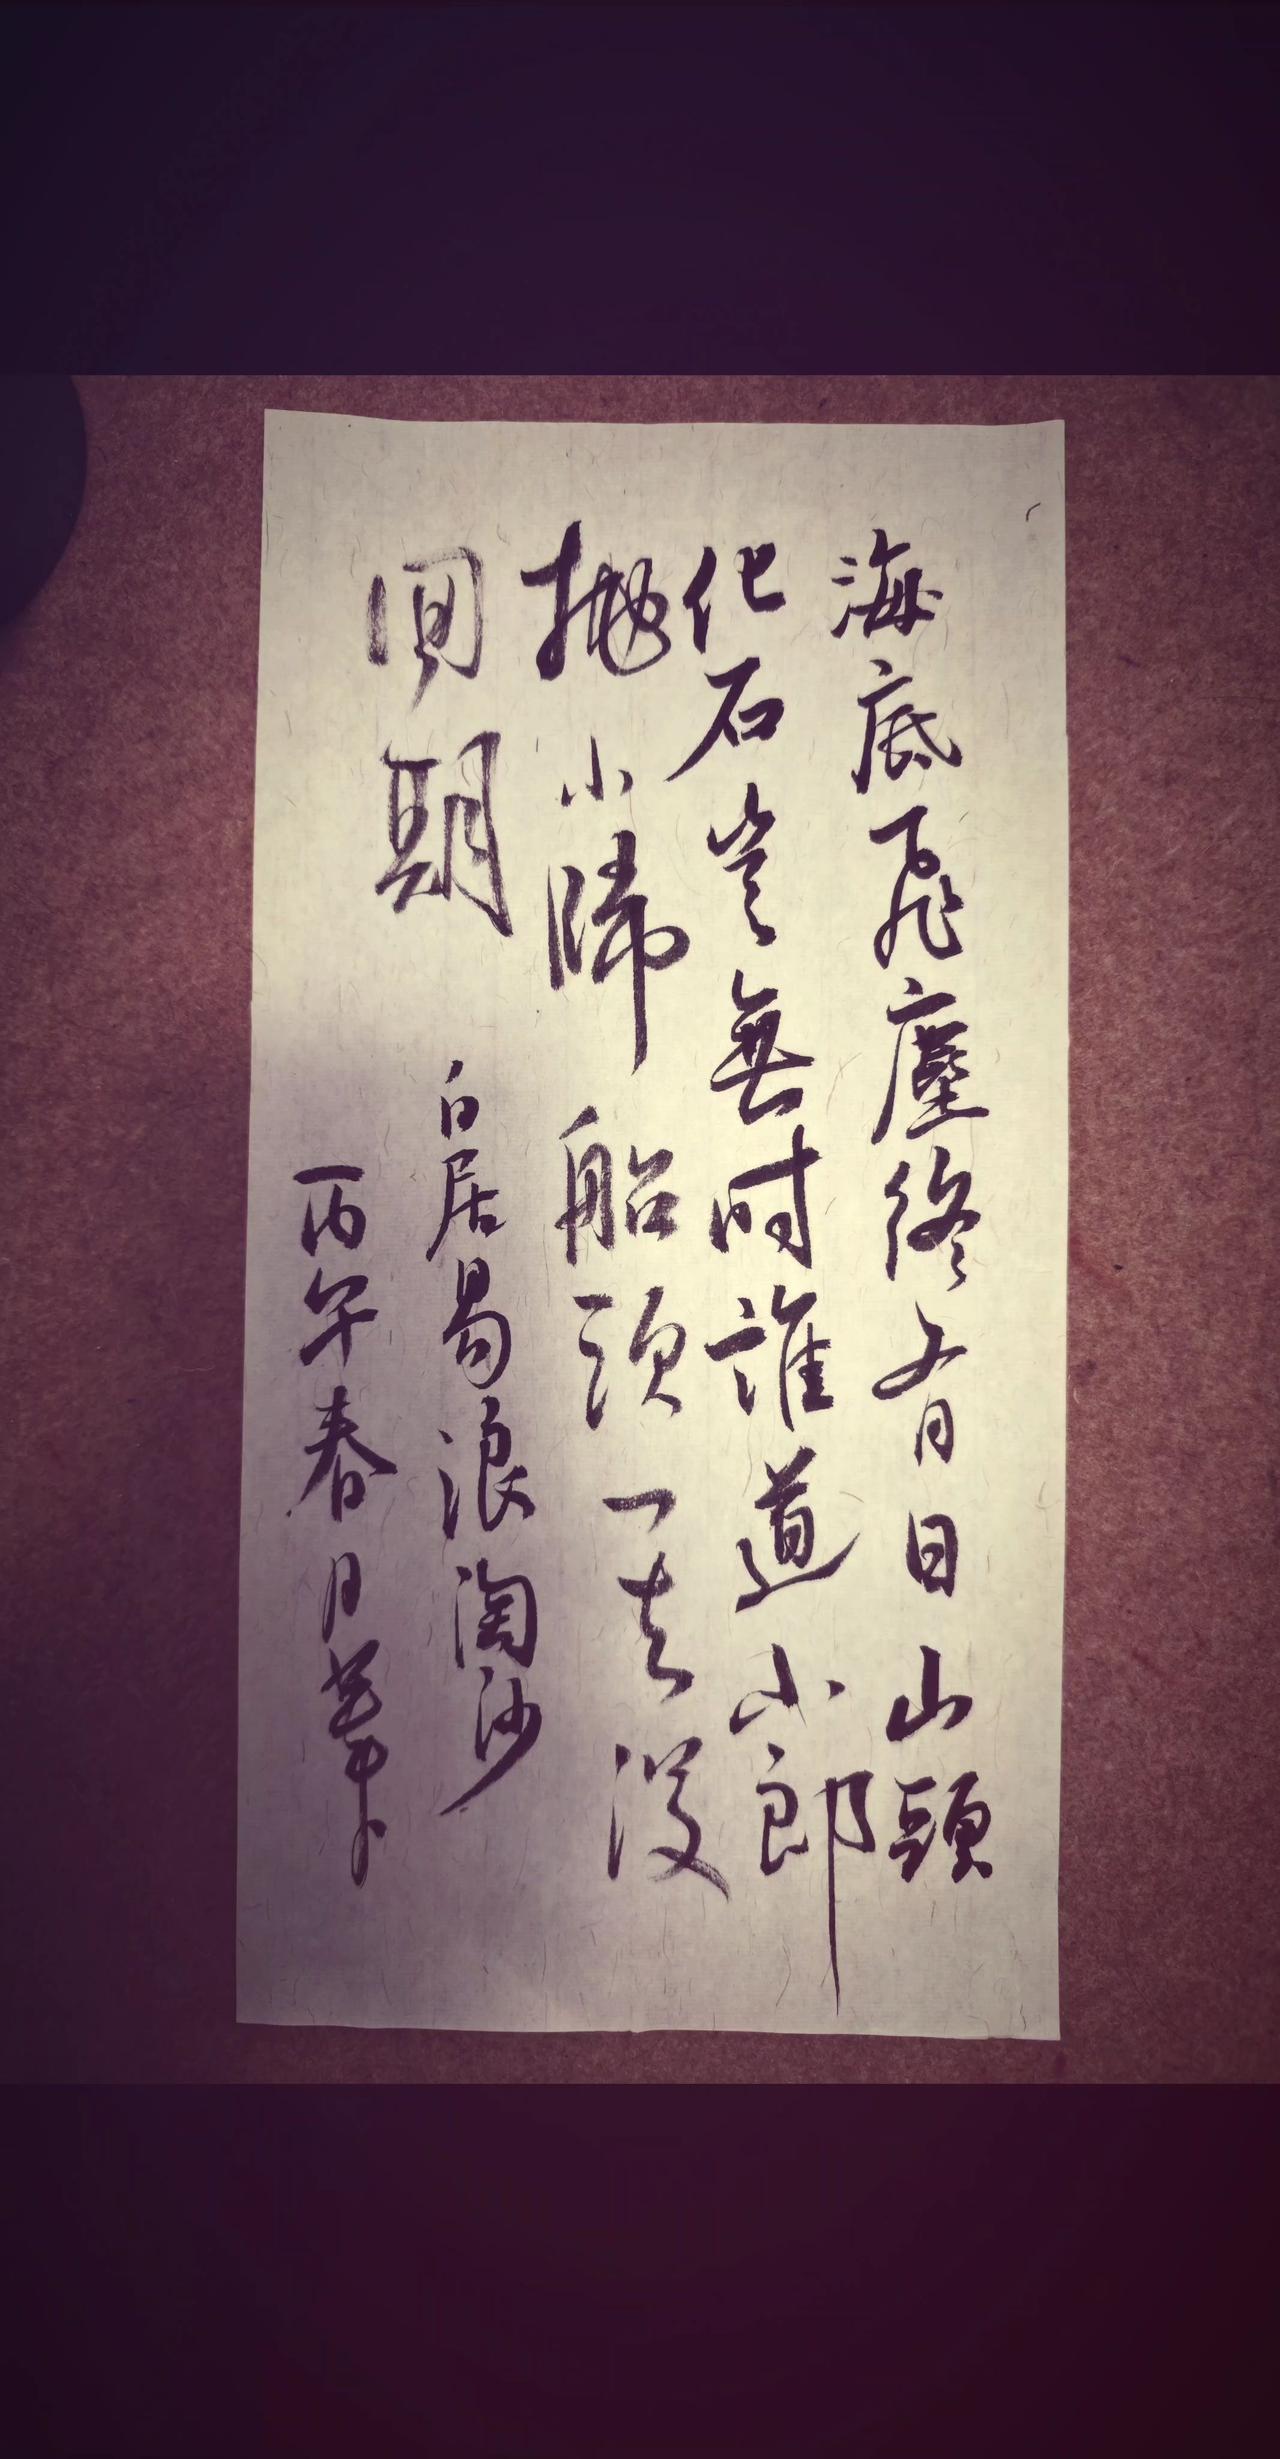 海底飛塵終有日山頭
化石豈無时誰道小郎
拋小帰船頭一去沒
回期
白居易浪淘沙
丙午春月